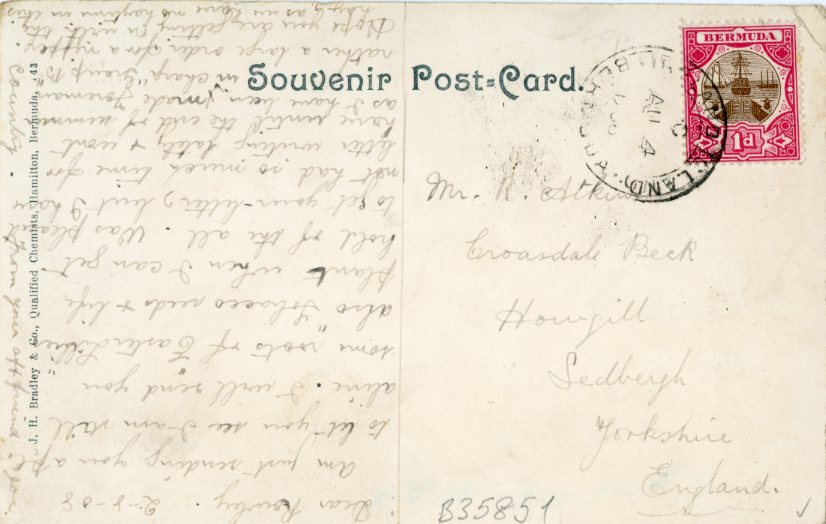 Souvenir Post-Card.
BERMUDA
1d
AU 4
Mr. R. Atkin
Croasdale Beck
Howgill
Sedbergh
Yorkshire
England.
B35851
J. H. Bradley & Co., Qualified Chemists, Hamilton, Bermuda, 43
Dear Rowley. 2-8-08
Am just sending you a p.c.
to let you see I am still
alive. I will send you
some "roots of Easter Lillies
also Tobacco seeds & life
plant when I can get
hold of the all. Was pleased
to get your letter, but I have
not had so much time for
letter writing lately & wont
have until the end of summer
as I have been made foreman
in charge
rather a large order for a nipper.
Hope you are getting on with the
hay, as we have no haytime in this
Country.
from your aff friend
Joe